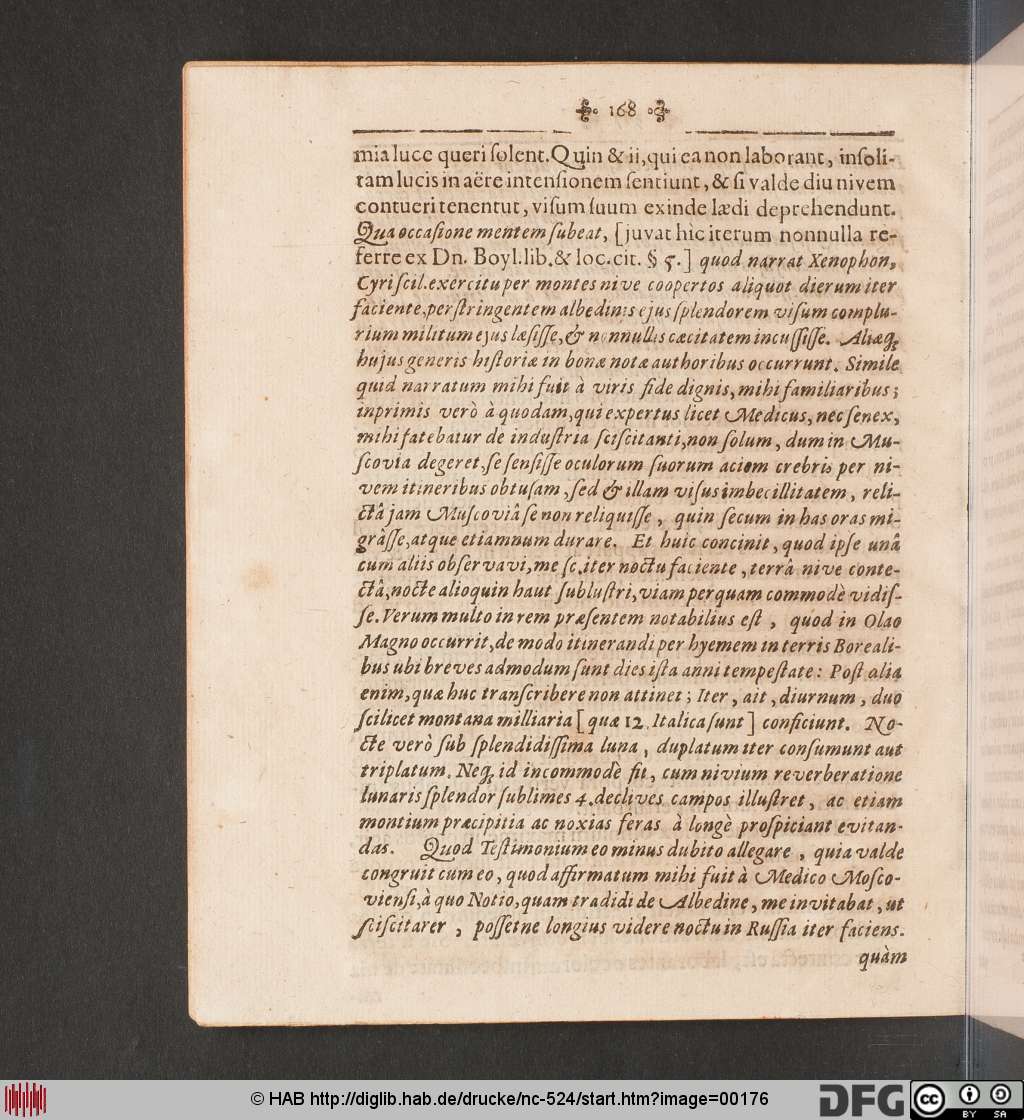 168
mia luce queri ſolent. Quin & ii, qui ea non laborant, inſoli-
tam lucis in aëre intenſionem ſentiunt, & ſi valde diu nivem
contueri tenentut, viſum ſuum exinde lædi deprehendunt.
Qua occaſione mentem ſubeat, [juvat hic iterum nonnulla re-
ferre ex Dn. Boyl. lib. & loc. cit. § 5.] quod narrat Xenophon,
Cyri ſcil. exercitu per montes nive coopertos aliquot dierum iter
faciente, perſtringentem albedinis ejus ſplendorem viſum complu-
rium militum ejus læſiſſe, & nonnullis cæcitatem incuſſiſſe. Aliæq;
hujus generis hiſtoriæ in bonæ notæ authoribus occurrunt. Simile
quid narratum mihi fuit à viris fide dignis, mihi familiaribus;
inprimis verò à quodam, qui expertus licet Medicus, nec ſenex,
mihi fatebatur de induſtria ſciſcitanti, non ſolum, dum in Mu-
ſcovia degeret, ſe ſenſiſſe oculorum ſuorum aciem crebris per ni-
vem itineribus obtuſam, ſed & illam viſus imbecillitatem, reli-
ctâ jam Muſcoviâ ſe non reliquiſſe, quin ſecum in has oras mi-
grâſſe, atque etiamnum durare. Et huic concinit, quod ipſe unâ
cum aliis obſervavi, me ſc. iter noctu faciente, terrâ nive conte-
ctâ, nocte alioquin haut ſubluſtri, viam perquam commodè vidiſ-
ſe. Verum multo in rem præſentem notabilius eſt, quod in Olao
Magno occurrit, de modo itinerandi per hyemem in terris Boreali-
bus ubi breves admodum ſunt dies iſta anni tempeſtate: Poſt alia
enim, quæ huc tranſcribere non attinet; Iter, ait, diurnum, duo
ſcilicet montana milliaria [quæ 12. Italica ſunt] conficiunt. No-
cte verò ſub ſplendidiſſima luna, duplatum iter conſumunt aut
triplatum. Neq; id incommodè fit, cum nivium reverberatione
lunaris ſplendor ſublimes 4. declives campos illuſtret, ac etiam
montium præcipitia ac noxias feras à longè proſpiciant evitan-
das. Quod Teſtimonium eo minus dubito allegare, quia valde
congruit cum eo, quod affirmatum mihi fuit à Medico Moſco-
vienſi, à quo Notio, quam tradidi de Albedine, me invitabat, ut
ſciſcitarer, poſſetne longius videre noctu in Ruſſia iter faciens.
quàm
© HAB http://diglib.hab.de/drucke/nc-524/start.htm?image=00176
DFG
cc BY SA